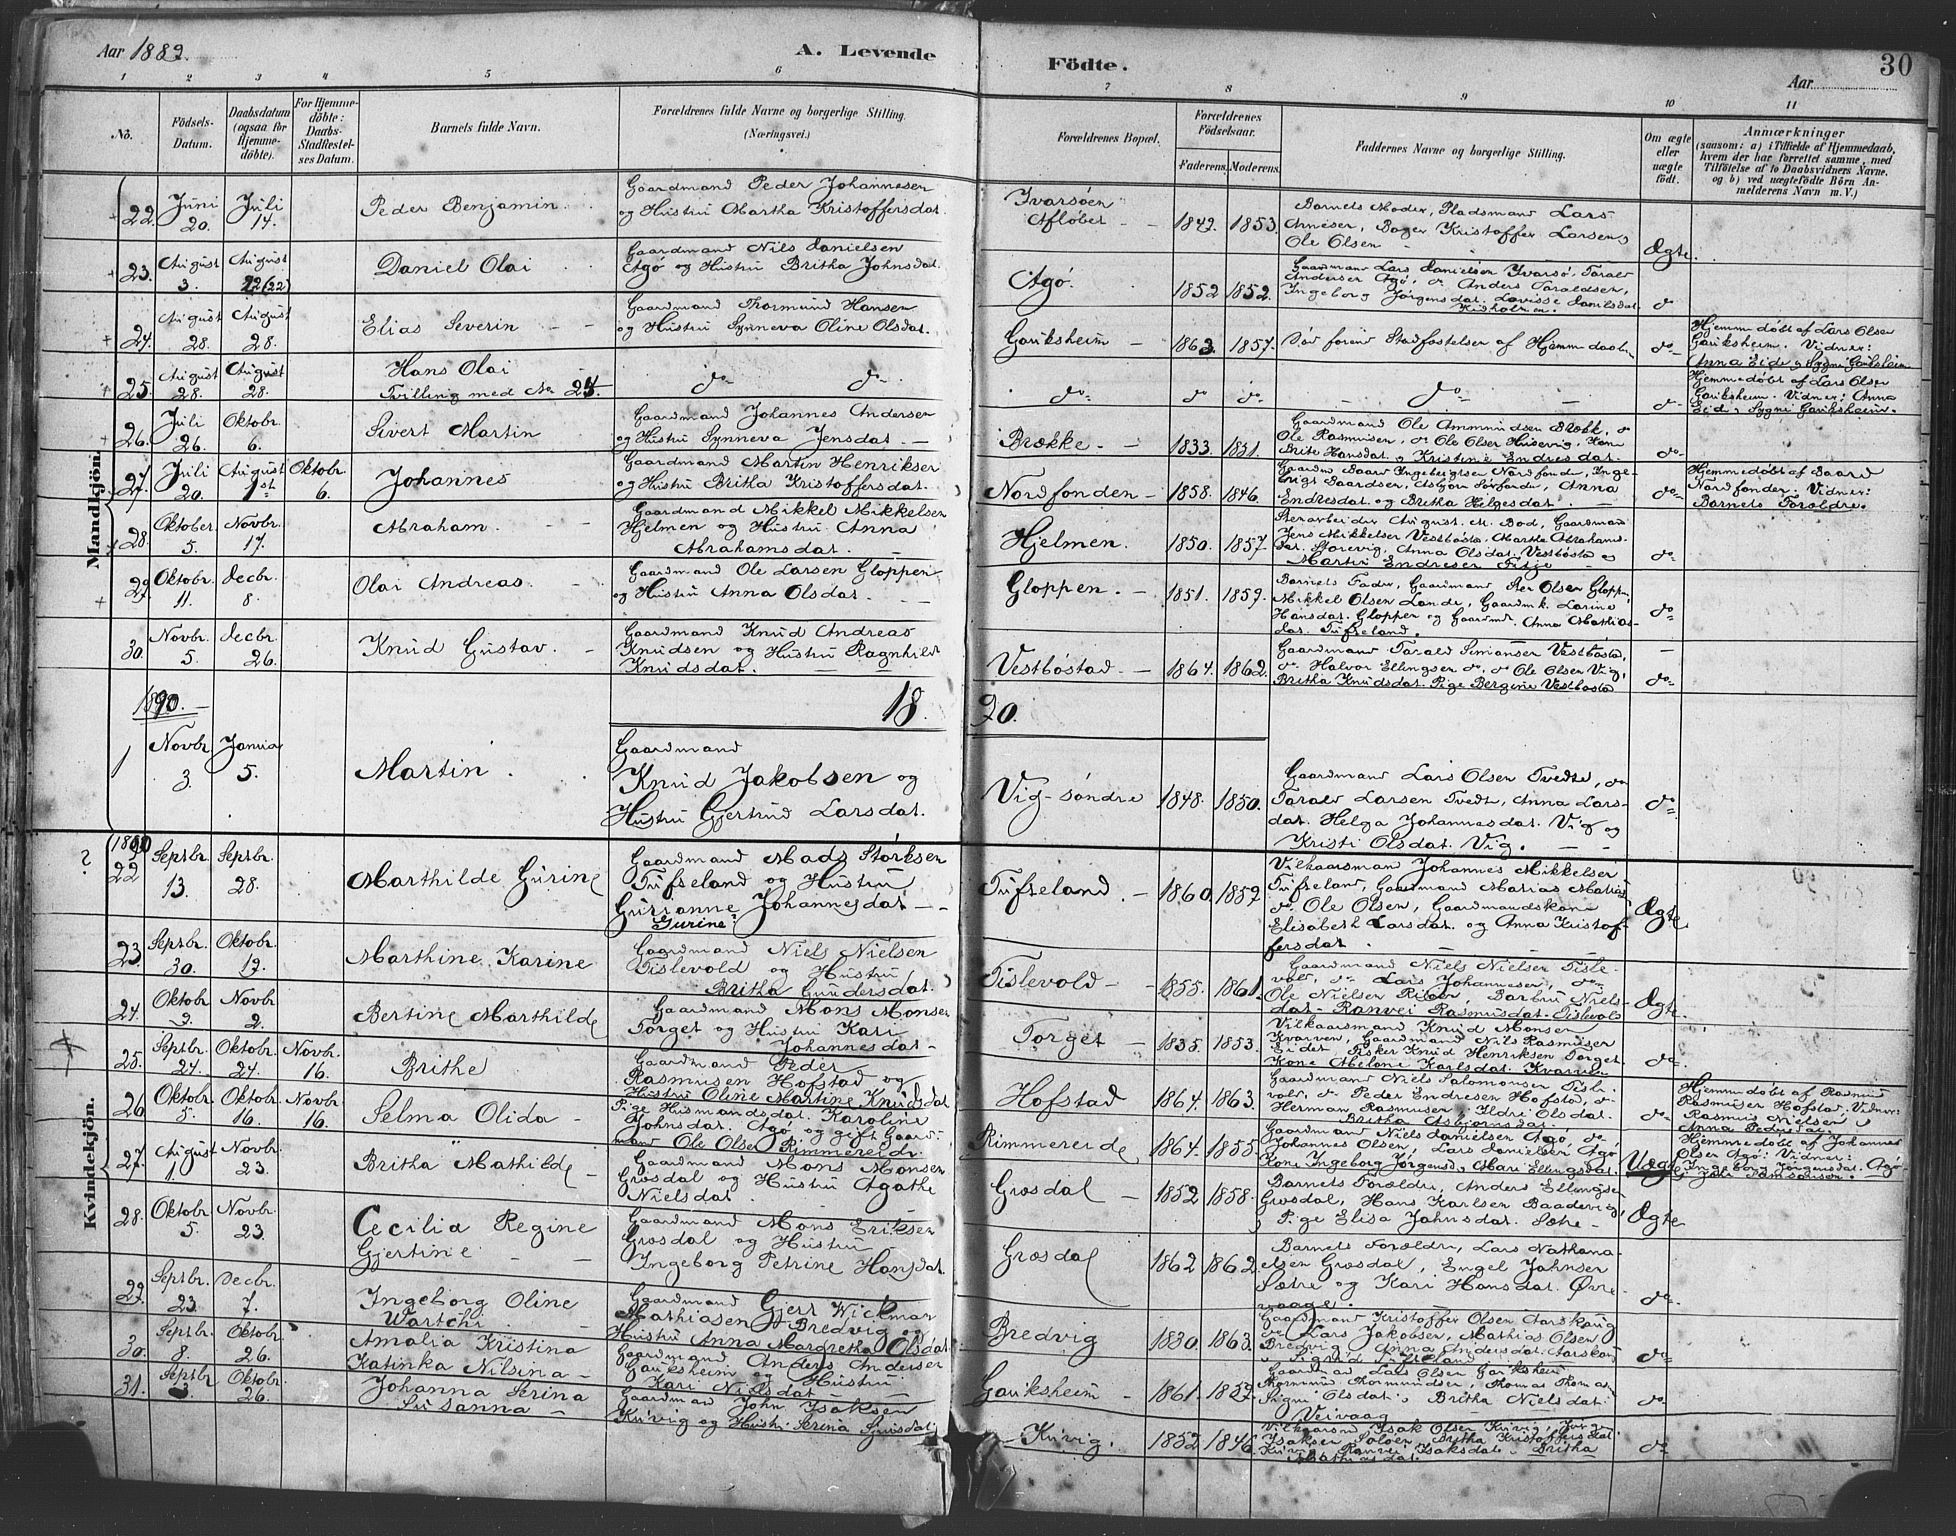 Aar 1889.
A. Levende
Födte.
Aar
30
1 2 3 4 5 6 7 8 9 10 11
No.
Födsels-Datum.
Daabsdatum (ogsaa for Hjemme-döbte).
For Hjemme-döbte: Daabs-Stadfæstel-ses Datum.
Barnets fulde Navn.
Forældrenes fulde Navne og borgerlige Stilling. (Næringsvei.)
Forældrenes Bopæl.
Forældrenes Födselsaar.
Faderens. Moderens.
Faddernes Navne og borgerlige Stilling.
Om ægte eller uægte födt.
Anmærkninger
(saasom: a) i Tilfælde af Hjemmedaab, hvem der har forrettet samme, med Tilföielse af to Daabsvidners Navne. og b) ved uægtefödte Börn An-melderens Navn m. V.)
Mandkjön.
22. Juni 20. Juli 14. Peder Benjamin Gaardmand Peder Johannesen
og Hustru Martha Kristoffersdat. Ivarsøen Afløbet 1842. 1853. Barnets Moder, Pladsmand Lars
Arnesen, Kristoffer Larsen,
Ole Olsen Ægte.
23. August 3. August 22 (22) Daniel Olai Gaardmand Nils Danielsen
Agø og Hustru Britha Johnsdat. Agø. 1852 1852. Gaardmand Lars Danielsen Ivarsø, Tarald
Andersen Agø, do Anders Taraldsen,
Ingeborg Jørgensdat. Lovisse Danielsdat. do
24. August 28. August 28. Elias Severin Gaardmand Thormund Hansen
og Hustru Synneva Oline Olsdat. Gauksheim 1863. 1857. do Hjemmedøbt af Lars Olsen
Gauksheim. Vidner:
Anna Eide, Sygni Gauksheim
25. August 28. August 28. Hans Olai
Tvilling med No 24. do do do do do do do Hjemmedøbt af Lars Olsen
Gauksheim. Vidner: Anna
Eide, Sygni Gauksheim.
26. Juli 26. Oktobr. 6. Sivert Martin Gaardmand Johannes Andersen
og Hustru Synneva Jensdat. Brække 1833. 1851. Gaardmand Ole Ammundsen Brække, do
Ole Rasmusen, do Ole Olsen Husevig, Kone
Brite Hansdat. og Kristine Endresdat. do
27. Juli 20. August 1st Oktobr. 6. Johannes Gaardmand Martin Henriksen
og Hustru Britha Kristoffersdat. Nordfonden 1858. 1846. Gaardm. Baard Ingebrigtsen Nordfonde, Inge-
brigt Baardsen, Asbjørn Sørfonde, Anna
Endresdat. og Britha Helgesdat. do Hjemmedøbt af Baard
Nordfonden. Vidner:
Barnets Forældre.
28. Oktober 5. Novbr. 17. Abraham. Gaardmand Mikkel Mikkelsen
Hjelmen og Hustru Anna
Abrahamsdat. Hjelmen. 1850. 1857. August M. Bod, Gaardmand
Jens Mikkelsen Vestbøstø, Martha Abrahams-
dat. Storevig, Anna Olsdat. Vestbøstø og
Martin Endresen Fitje do
29. Oktobr. 11. Decbr. 8. Olai Andreas Gaardmand Ole Larsen Gloppen
og Hustru Anna Olsdat. Gloppen. 1851. 1859. Barnets Fader, Gaardmand Per Olsen Gloppen,
Mikkel Olsen Lande, Gaardmk. Larine
Hansdat. Gloppen og Gaardmk. Anna Mathias-
dat. Tufseland. do
30. Novbr. 5. Decbr. 26. Knud Gustav. Gaardmand Knud Andreas
Knudsen og Hustru Ragnhild
Knudsdat. Vestbøstad 1864. 1862. Gaardmand Tarald Simonsen Vestbøstø,
do Halvor Ellingsen do, do Ole Olsen Vig,
Britha Knudsdat. Pige Bergine Vestbøstø do
1890. 18. 90.
1 Novbr 3. Janua 5. Martin. Gaardmand
Knud Jakobsen og
Hustru Gjertrud Larsdat. Vig-søndre 1848. 1850. Gaardmand Lars Olsen Tvedte, do
Tarald Larsen Tvedt, Anna Lars-
dat. Helga Johannesdat. Vig og
Kristi Olsdat. Vig. do
Kvindekjön.
22 Septbr. 13. Septbr. 28. Marthilde Gurine Gaardmand Mads Størksen
Tufseland og Hustru
Gurianne Johannesdat.
Gurine Tufseland. 1860. 1859 Vilkaarsmand Johannes Mikkelsen
Tufseland, Gaardmand Matias Matias
do Ole Olsen, Gaardmandskone
Elisabeth Larsdat. og Anna Kristof-
fersdat. Ægte
23. Septbr. 30. Oktobr. 19. Marthine Karine Gaardmand Niels Nielsen
Tislevold og Hustru
Britha Gundersdat. Tislevold 1855. 1861. Gaardmand Niels Nielsen Tisle-
vold, do Lars Johannesen, do
Ole Nielsen, Barbru Niels-
dat. Ranvei Rasmusdat. Tislevold Ægte
24. Oktobr 9. Novbr. 2. Bertine Marthilde Gaardmand Mons Monsen
Torget og Hustru Kari
Johannesdat. Torget 1835. 1853. Vilkaarsmand Knud Monsen
Kvarven, Gaardmand Nils Rasmusen
Eidet, Fisker Knud Henriksen Torget.
Kone Abelone Karlsdat. Kvarven do
25. Septbr. 24. Oktobr. 24. Novbr. 16. Brithe Gaardmand Peder
Rasmusen Hofstad og
Hustru Oline Martine Knudsdat Hofstad 1864. 1863. Gaardmand Niels Salomonsen Tisle-
vold, do Peder Endresen Hofstø, do
Herman Rasmusen, Ildri Olsdat.
Britha Asbjørnsdat. do Hjemmedøbt af Rasmus
Rasmusen Hofstad. Vidner:
Rasmus Nielsen
Anna Pedersdat.
26. Oktobr. 5. Oktobr. 16. Novbr. 16. Selma Olida Pige Husmandsdat. Karoline
Johnsdat. Agø og gift Gaard-
mand Ole Olsen Rimmereide. Rimmereide 1864. 1855. Gaardmand Niels Danielsen Agø, do
Johannes Olsen, Lars Danielsen Agø
Kone Ingeborg Jørgensd., Mari Ellingsdat. Uægte Hjemmedøbt af Johannes
Olsen Agø: Vidner:
Ingeborg Jørgensdat. Agø
27. August 1. Novbr. 23. Britha Mathilde Gaardmand Mons Monsen
Grøsdal og Hustru Agathe
Nielsdat. Grøsdal 1852 1858. Barnets Forældre, Anders Ellingsen
Grøsdal, Hans Karlsen Baadevig,
Pige Elisa Jahnsdat. Sætre Ægte
28. Oktobr. 5. Novbr. 23. Cecilia Regine
Gjertine Gaardmand Mons Eriksen
Grøsdal og Hustru
Ingeborg Petrine Hansdat. Græsdal 1862 1862 Barnets Forældre, Lars Nathana-
elsen Grøsdal, Engel Johnsen
Sætre og Kari Hansdat. Øvre-
vaage. do
29. Septbr. 23. Decbr. 7. Ingeborg Oline
Gaardmand Gjert Wickman
Mathiasen Bredvig og
Hustru Anna Margretha Olsdat Bredvig 1830 1863. Gaardmand Kristoffer Olsen Aarskaug
do Lars Jakobsen, Mathias Olsen
Bredvig, Anna Andersdat. Aarskau
do
30. Septbr. 8. Oktobr. 26. Amalia Kristina
Katinka Nilsina Gaardmand Anders Andersen
Gauksheim og Hustru
Kari Nielsdat Gauksheim 1861. 1859. Gaardmand Lars Olsen Gauksheim
Thormund Thormundsen, Thomas Thomas-
Signi Olsdat. Britha Nielsdat.
Veivaag do
31. Septbr 3. Oktobr. 26. Johanna Serina
Susanna Gaardmand John Isaksen
Kuvig og Hustr. Serina Kuvig. 1852 1846. Vilkaarsm. Isak Olsen Kuvig,
Isaksen, Britha Kristoffersdat.
Kuvig, Ranvei Isaksdat. Britha
Mathiasdat. do